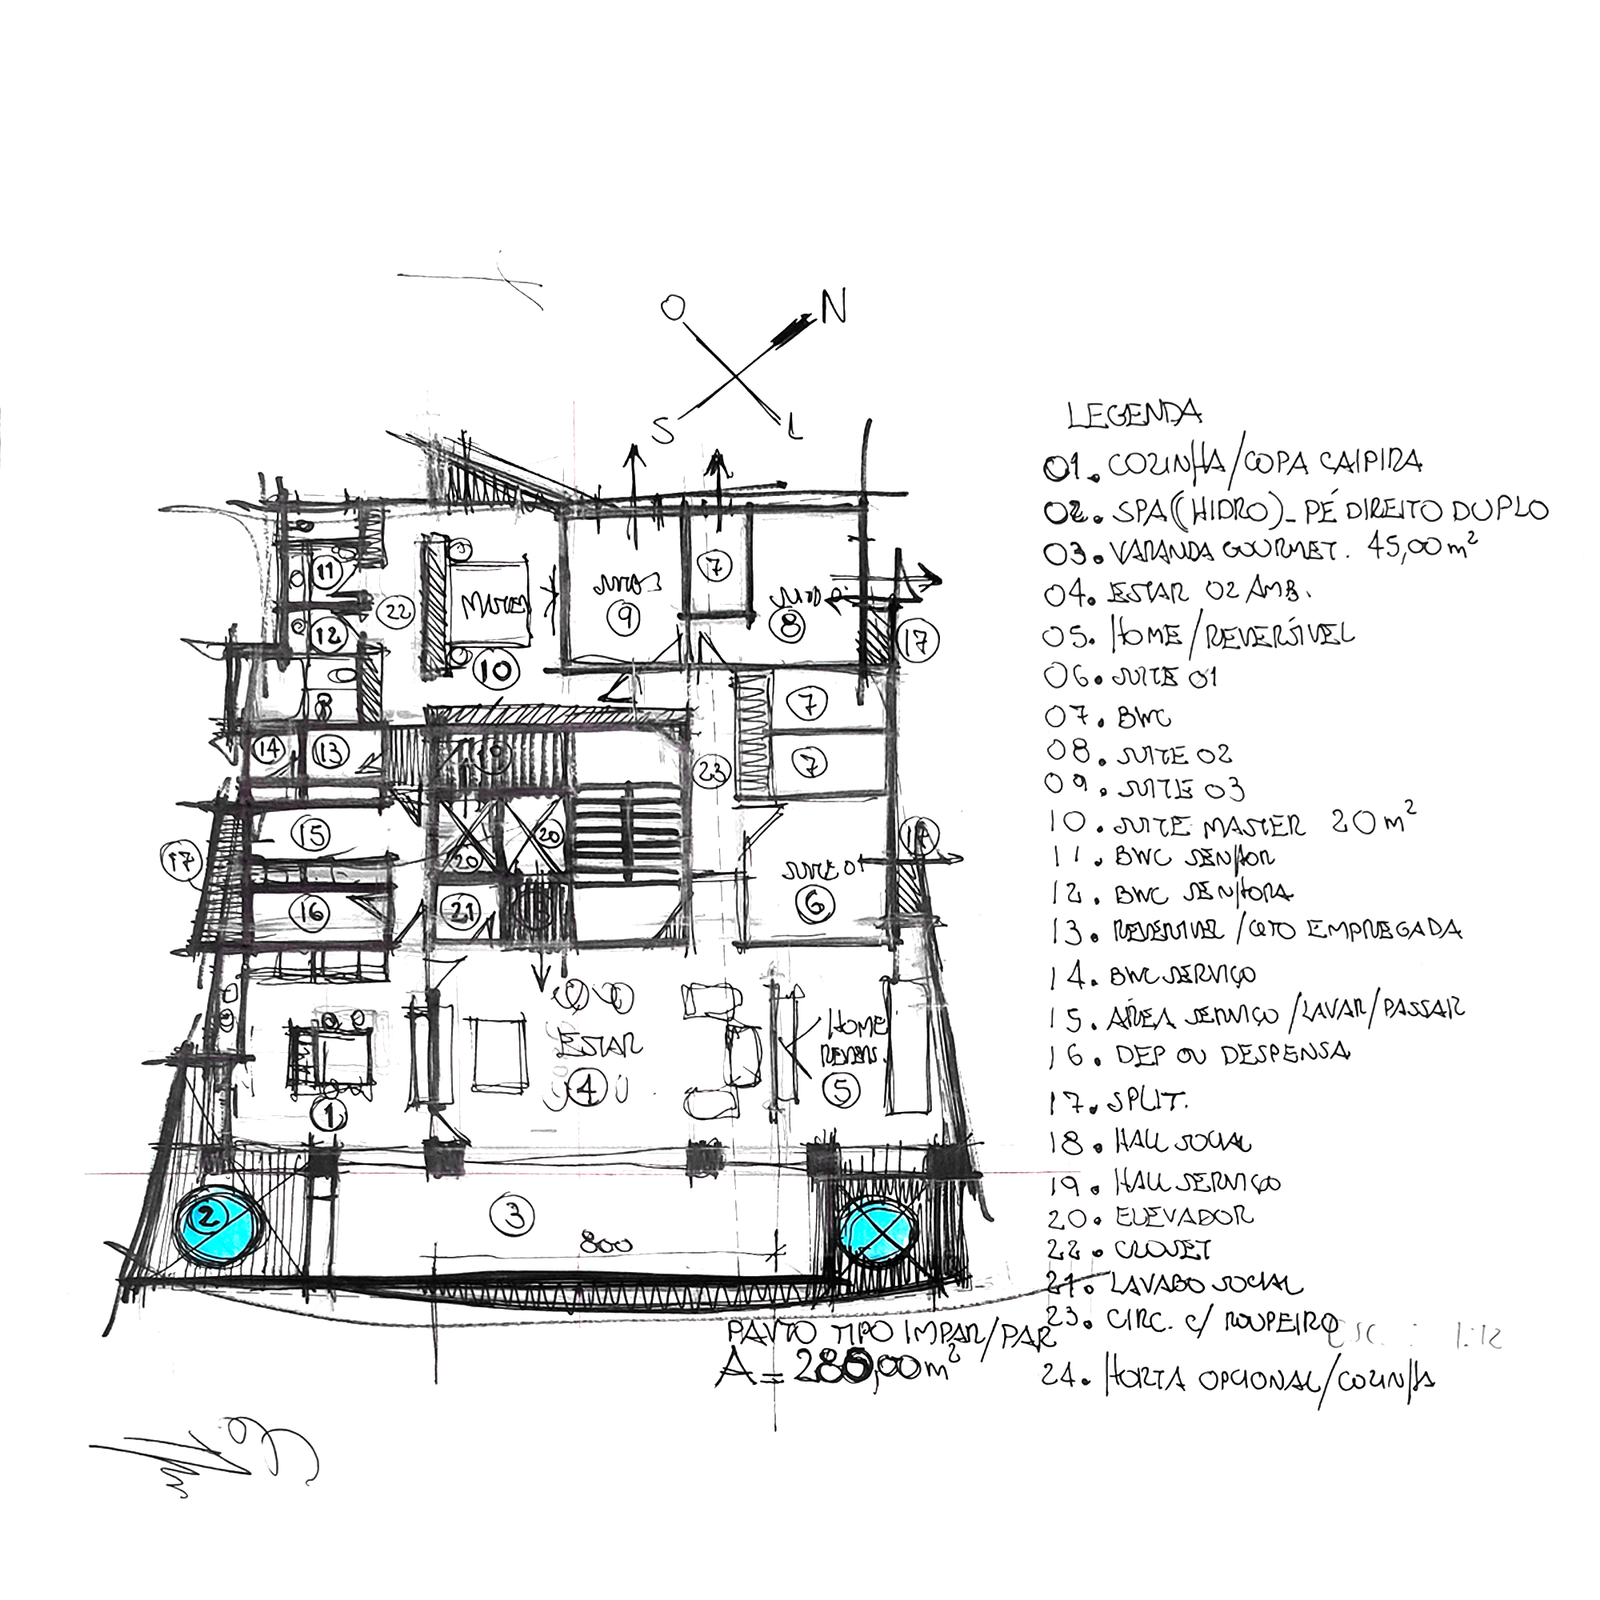 O N
S L
LEGENDA
01. COZINHA/COPA CAIPIRA
02. SPA (HIDRO)_ PÉ DIREITO DUPLO
03. VARANDA GOURMET. 45,00 m²
04. ESTAR 02 AMB.
05. HOME/REVERSÍVEL
06. SUITE 01
07. BWC
08. SUITE 02
09. SUITE 03
10. SUITE MASTER 20 m²
11. BWC SENHOR
12. BWC SENHORA
13. REVERSIVEL /QTO EMPREGADA
14. BWC SERVIÇO
15. ÁREA SERVIÇO /LAVAR/PASSAR
16. DEP OU DESPENSA
17. SPLIT.
18. HALL SOCIAL
19. HALL SERVIÇO
20. ELEVADOR
22. CLOSET
21. LAVABO SOCIAL
23. CIRC. C/ ROUPEIRO
24. HORTA OPCIONAL/COZINHA
11
22
MASTER
SUITE 3
9
7
8
12
10
17
7
14
13
19
23
7
15
20
20
17
16
21
SUITE 01
6
ESTAR
4
HOME
REVERS.
5
1
2
3
800
PAVTO TIPO IMPAR/PAR
A = 280,00 m²